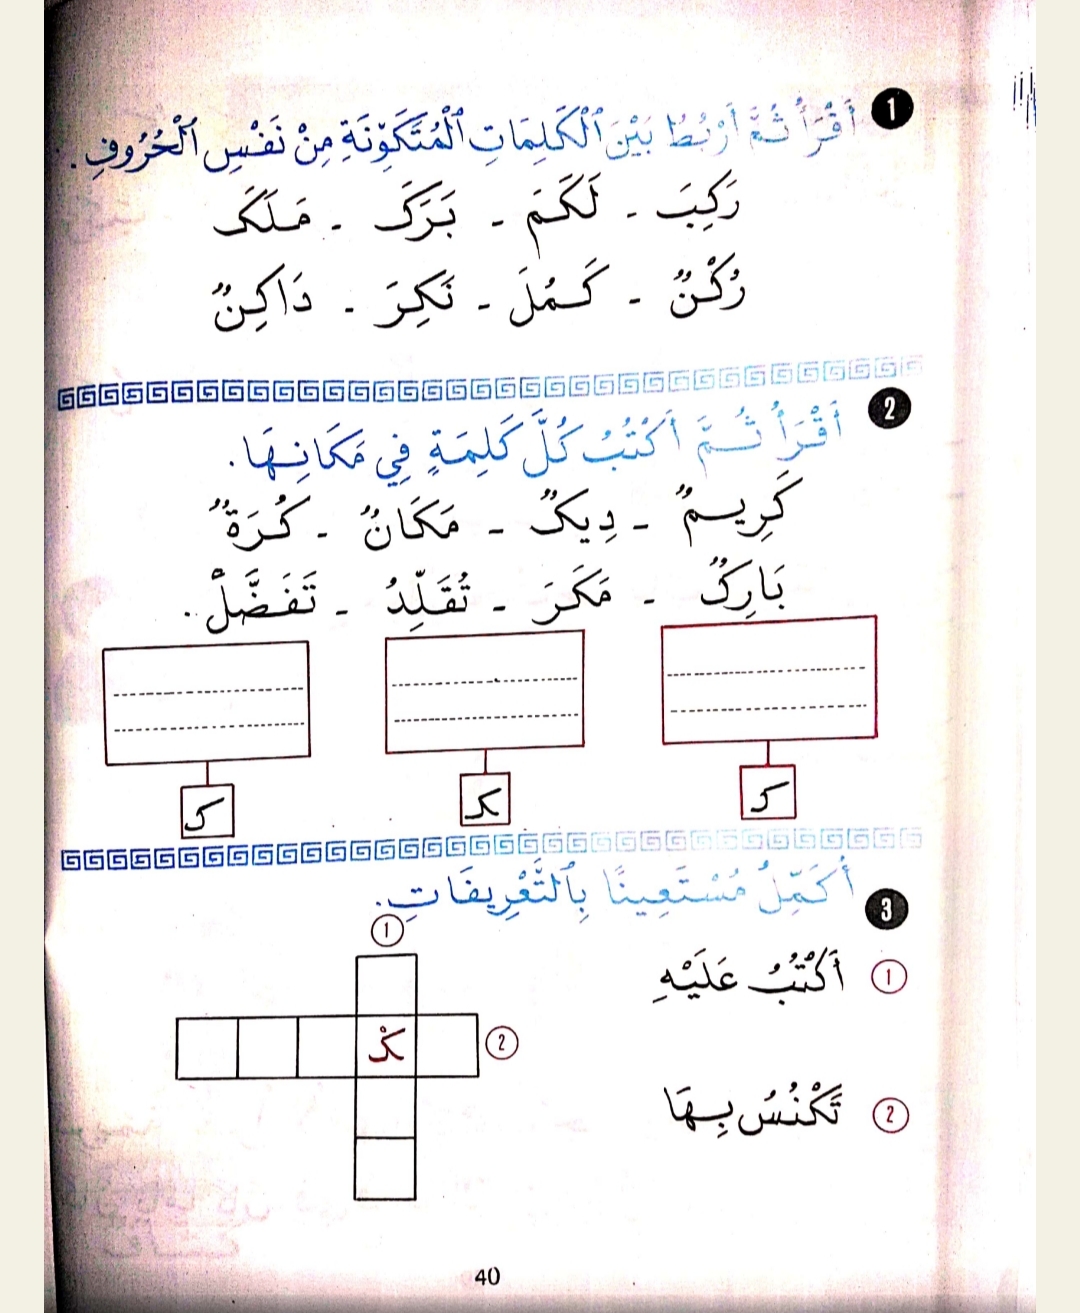 1 أَقْرَأُ ثُمَّ أَرْبُطُ بَيْنَ ٱلْكَلِمَاتِ ٱلْمُتَكَوِّنَةِ مِنْ نَفْسِ ٱلْحُرُوفِ.
رَكِبَ - لَكَمَ - بَرَكَ - مَلَكَ
رُكْنٌ - كَمُلَ - نَكِرَ - دَاكِنٌ
2 أَقْرَأُ ثُمَّ أَكْتُبُ كُلَّ كَلِمَةٍ فِي مَكَانِهَا.
كَرِيمٌ - دِيكٌ - مَكَانٌ - كُرَةٌ
بَارِكٌ - مَكَرَ - تُقَلِّدُ - تَفَضَّلْ.
كـ ـكـ كـ
3 أُكَمِّلُ مُسْتَعِينًا بِٱلتَّعْرِيفَاتِ.
1
1 أَكْتُبُ عَلَيْهِ
كْـ 2
2 تَكْنُسُ بِهَا
40